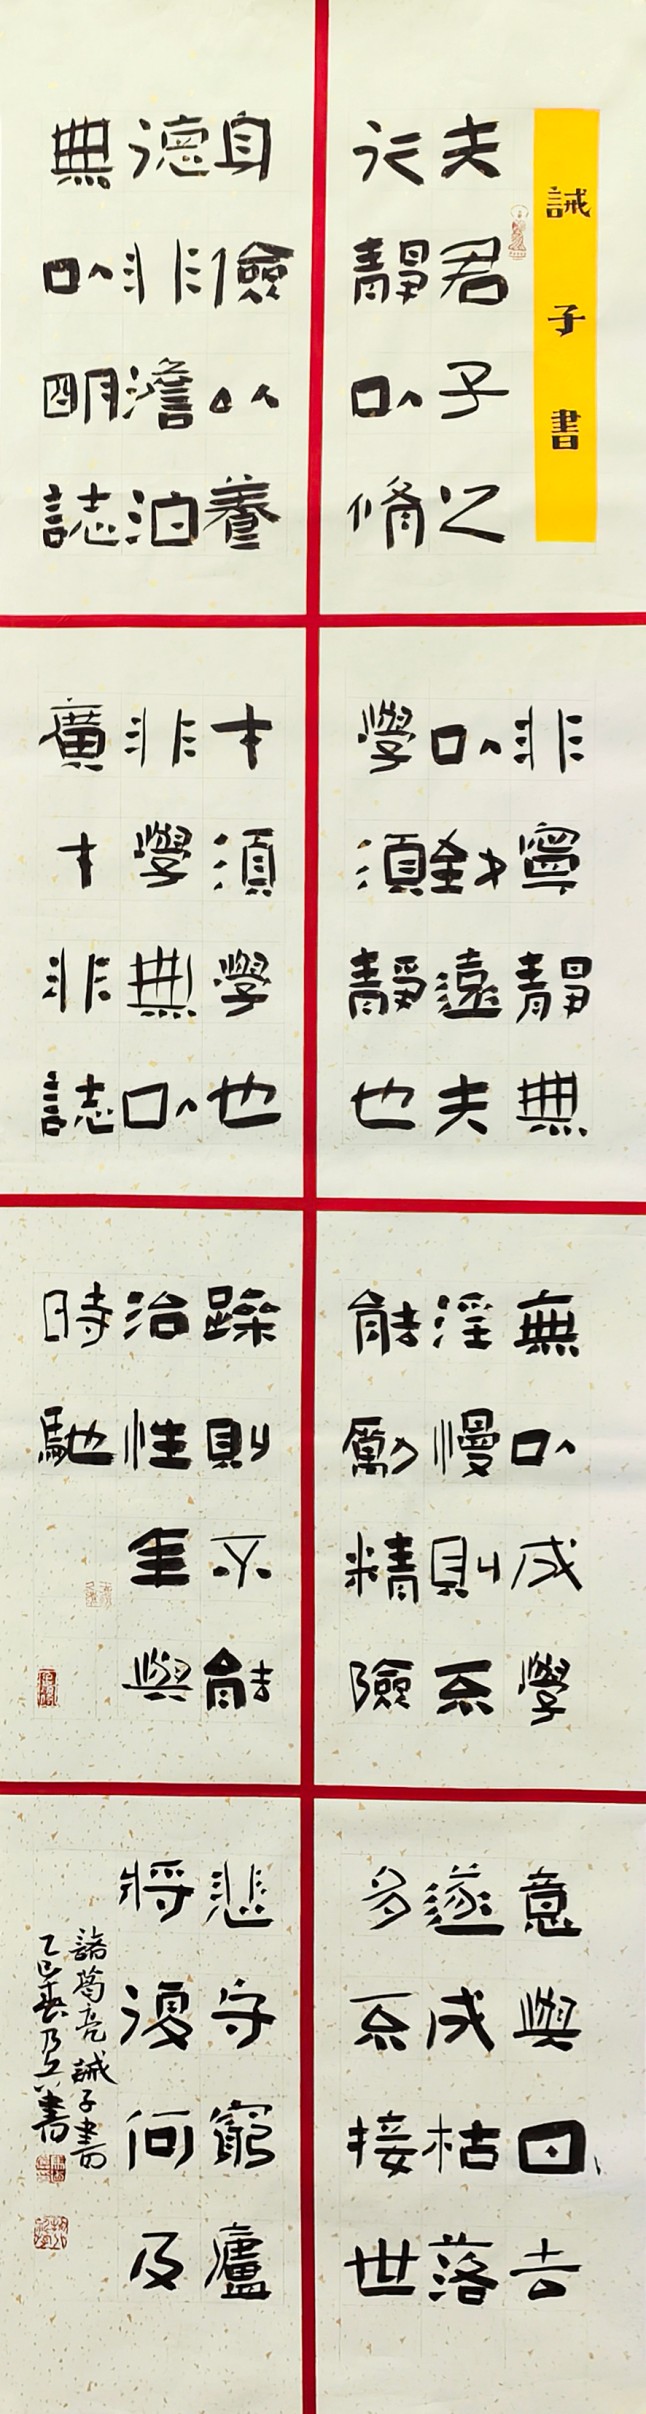 誡子書
夫君子之
行靜以脩
身儉以養
德非澹泊
無以明誌
非寧靜無
以致遠夫
學須靜也
才須學也
非學無以
廣才非誌
無以成學
淫慢則不
能勵精險
躁則不能
治性年與
時馳
意與日去
遂成枯落
多不接世
悲守窮廬
將復何及
諸葛亮誡子書
乙巳春乃書